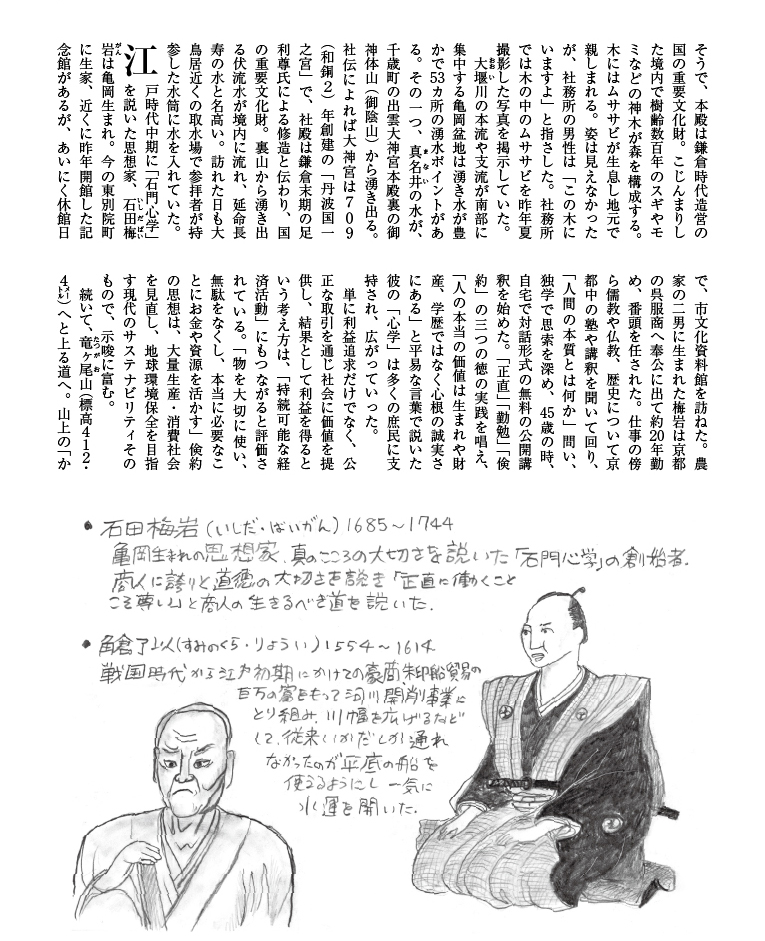 そうで、本殿は鎌倉時代造営の
国の重要文化財。こじんまりし
た境内で樹齢数百年のスギやモ
ミなどの神木が森を構成する。
木にはムササビが生息し地元で
親しまれる。姿は見えなかった
が、社務所の男性は「この木に
いますよ」と指さした。社務所
では木の中のムササビを昨年夏
撮影した写真を掲示していた。
おおい
大堰川の本流や支流が南部に
集中する亀岡盆地は湧き水が豊
かで53カ所の湧水ポイントがあ
まない
る。その一つ、真名井の水が、
千歳町の出雲大神宮本殿裏の御
神体山（御陰山）から湧き出る。
社伝によれば大神宮は７０９
（和銅２）年創建の「丹波国一
之宮」で、社殿は鎌倉末期の足
利尊氏による修造と伝わり、国
の重要文化財。裏山から湧き出
る伏流水が境内に流れ、延命長
寿の水と名高い。訪れた日も大
鳥居近くの取水場で参拝者が持
参した水筒に水を入れていた。
江戸時代中期に「石門心学」
いしだばい
を説いた思想家、石田梅
がん
岩は亀岡生まれ。今の東別院町
に生家、近くに昨年開館した記
念館があるが、あいにく休館日
で、市文化資料館を訪ねた。農
家の二男に生まれた梅岩は京都
の呉服商へ奉公に出て約20年勤
め、番頭を任された。仕事の傍
ら儒教や仏教、歴史について京
都中の塾や講釈を聞いて回り、
「人間の本質とは何か」問い、
独学で思索を深め、45歳の時、
自宅で対話形式の無料の公開講
釈を始めた。「正直」「勤勉」「倹
約」の三つの徳の実践を唱え、
「人の本当の価値は生まれや財
産、学歴ではなく心根の誠実さ
にある」と平易な言葉で説いた
彼の「心学」は多くの庶民に支
持され、広がっていった。
単に利益追求だけでなく、公
正な取引を通じ社会に価値を提
供し、結果として利益を得ると
いう考え方は、「持続可能な経
済活動」にもつながると評価さ
れている。「物を大切に使い、
無駄をなくし、本当に必要なこ
とにお金や資源を活かす」倹約
の思想は、大量生産・消費社会
を見直し、地球環境保全を目指
す現代のサステナビリティその
もので、示唆に富む。
たつがお
続いて、竜ケ尾山（標高４１２・
４メートル）へと上る道へ。山上の「か
• 石田梅岩（いしだ・ばいがん）1685～1744
亀岡生まれの思想家。真のこころの大切さを説いた「石門心学」の創始者。
商人に誇りと道徳の大切さを説き「正直に働くこと
こそ尊い」と商人の生きるべき道を説いた。
• 角倉了以（すみのくら・りょうい）1554～1614
戦国時代から江戸初期にかけての豪商、朱印船貿易の
巨万の富をもって河川開削事業に
とり組み、川幅を広げるなど
して、従来いかだしか通れ
なかったのが平底の船を
使えるようにし一気に
水運を開いた。